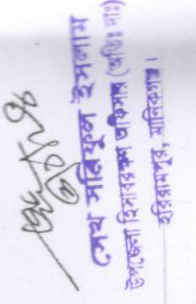 শেখ শরিফুল ইসলাম
উপজেলা হিসাবরক্ষণ অফিসার (অতিঃ দাঃ)
হরিরামপুর, মানিকগঞ্জ।